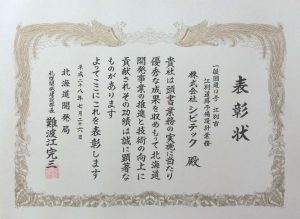 表彰状
一般国道12号 江別市
江別道路予備設計業務
株式会社シビテック 殿
貴社は頭書業務の実施に当たり
優秀な成果を収めもって北海道
開発事業の推進と技術の向上に
貢献されその功績は誠に顕著な
ものがあります
よってここにこれを表彰します
平成二十八年七月二十六日
北海道開発局
札幌開発建設部長
難波江完三